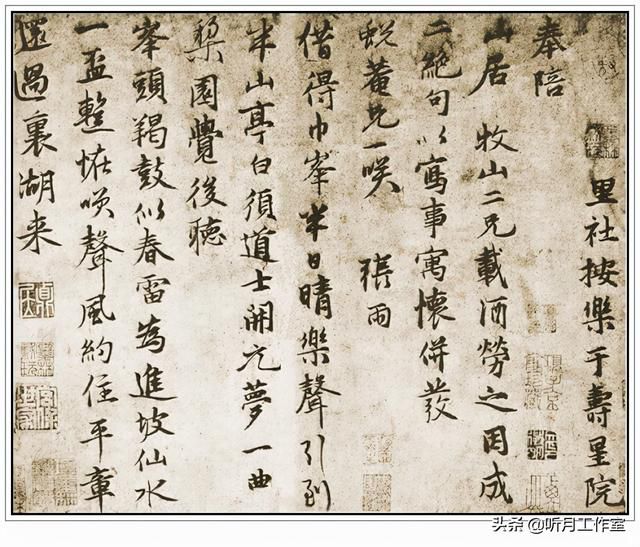 里社按樂于壽星院
奉陪
山居 牧山二兄載酒勞之因成
二絶句以寫事寓懷併發
蛻菴兄一咲 張雨
借得巾峯半日晴樂聲引到
半山亭白須道士開元夢一曲
梨園覺後聴
峯頭羯鼓似春雷為進坡仙水
一盃整恠咲聲風約住平章
還過裏湖来
头条 @听月工作室